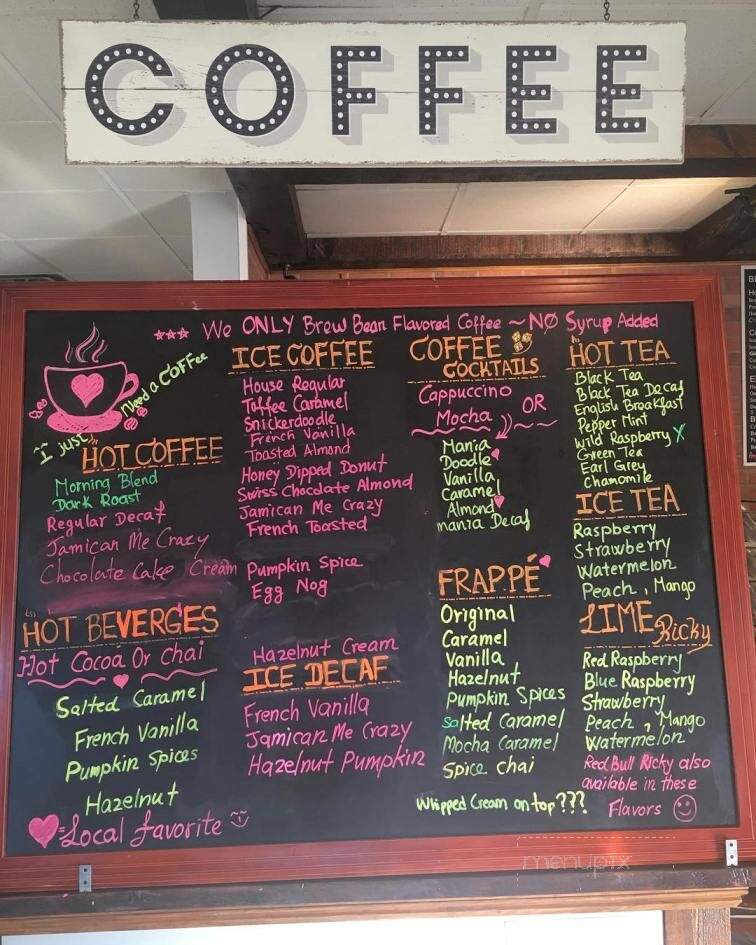 COFFEE
*** We ONLY Brew Bean Flavored Coffee ~ NO Syrup Added
I just Need a COFFee
HOT COFFEE
Morning Blend
Dark Roast
Regular Decaf
Jamican Me Crazy
Chocolate Cake Cream
HOT BEVERGES
Hot Cocoa Or Chai
Salted Caramel
French Vanilla
Pumpkin Spices
Hazelnut
=Local favorite
ICE COFFEE
House Regular
Toffee Caramel
Snickerdoodle
French Vanilla
Toasted Almond
Honey Dipped Donut
Swiss Chocolate Almond
Jamican Me Crazy
French Toasted
Pumpkin Spice
Egg Nog
Hazelnut Cream
ICE DECAF
French Vanilla
Jamican Me Crazy
Hazelnut Pumpkin
COFFEE
COCKTAILS
Cappuccino
OR
Mocha
Mania
Doodle
Vanilla
Caramel
Almond
mania Decaf
FRAPPÉ
Original
Caramel
Vanilla
Hazelnut
Pumpkin Spices
Salted Caramel
Mocha Caramel
Spice Chai
Whipped Cream on top???
HOT TEA
Black Tea
Black Tea Decaf
English Breakfast
Pepper Mint
Wild Raspberry X
Green Tea
Earl Grey
Chamomile
ICE TEA
Raspberry
Strawberry
Watermelon
Peach, Mango
LIME Ricky
Red Raspberry
Blue Raspberry
Strawberry
Peach, Mango
Watermelon
Red Bull Ricky also
available in these
Flavors
menupix